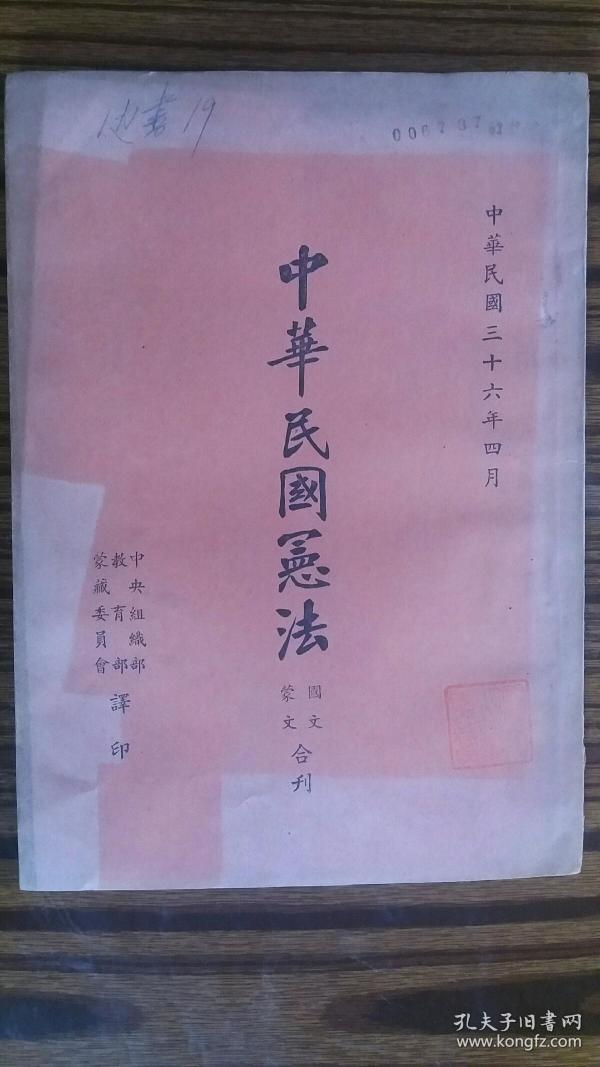 19
中華民國三十六年四月
中華民國憲法
國文
蒙文
合刊
中央組織部
教育部
蒙藏委員會
譯印
孔夫子旧书网
www.kongfz.com